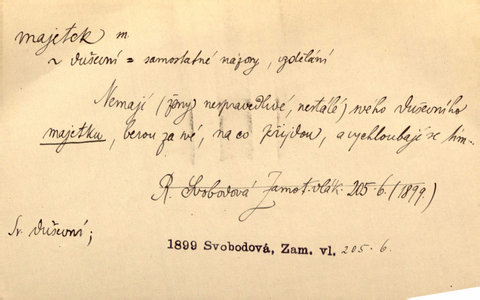 majetek m.
~ duševní = samostatné názory, vzdělání
Nemají (ženy) nespravedlivé, nestálé) svého duševního
majetku, berou za své, na co přijdou, a vychloubají se tím.
R. Svobodová Zamot. vlák. 205.6. (1899)
Sr. duševní;
1899 Svobodová, Zam. vl. 205.6.